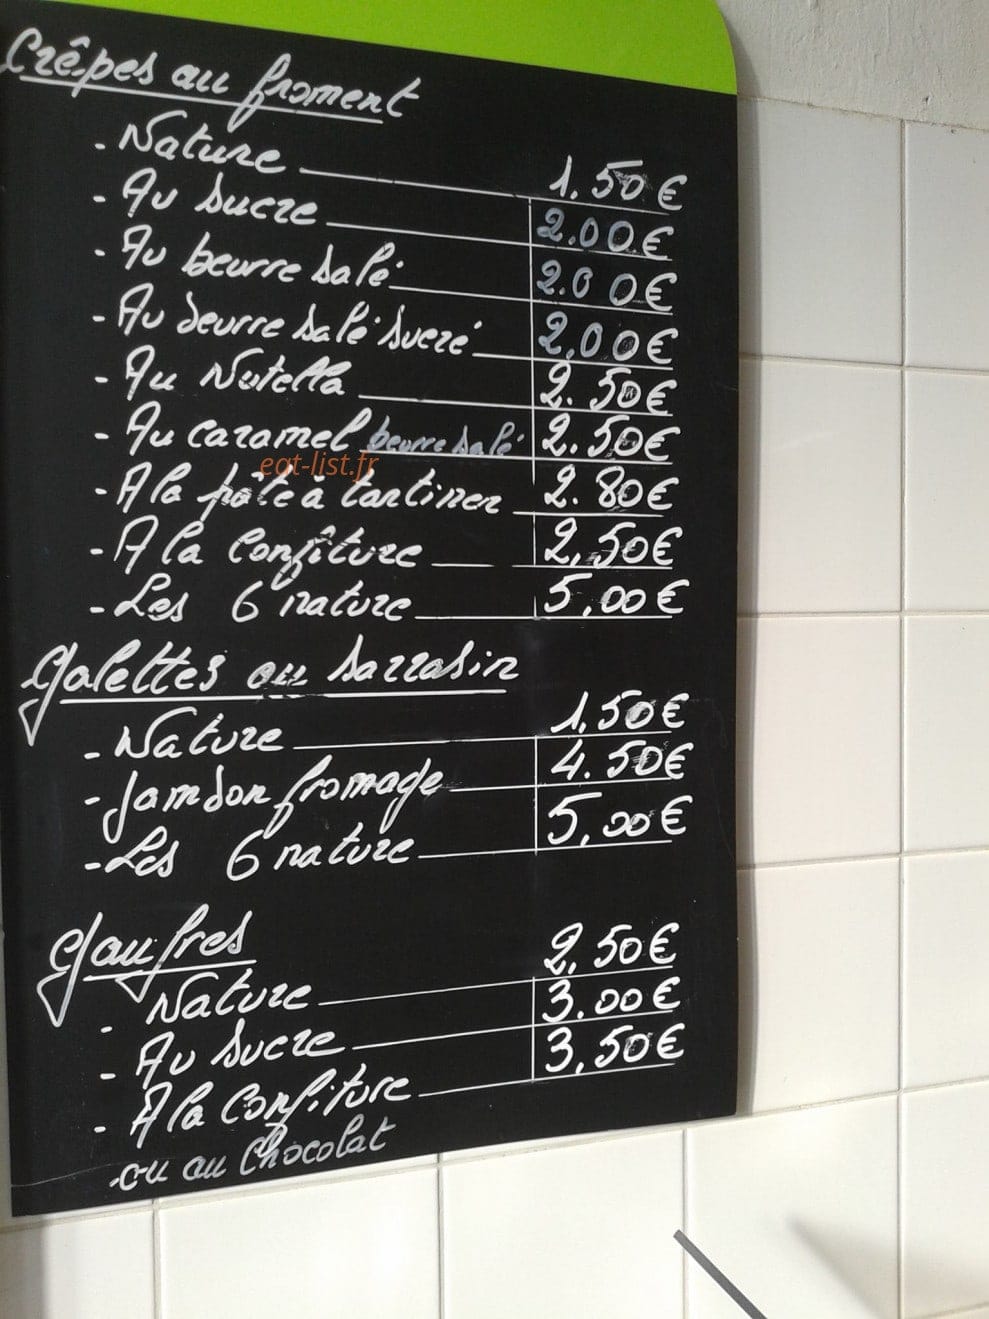 Crêpes au froment
- Nature 1.50 €
- Au sucre 2.00 €
- Au beurre salé 2.00 €
- Au beurre salé sucré 2,00 €
- Au Nutella 2.50 €
- Au caramel beurre salé 2.50 €
eat-list.fr
- A la pâte à tartiner 2.80 €
- A la confîture 2,50 €
- Les 6 nature 5,00 €
Galettes au sarrasin
- Nature 1,50 €
- Jambon fromage 4.50 €
- Les 6 nature 5,00 €
Gaufres
- Nature 2,50 €
- Au sucre 3.00 €
- A la confiture 3,50 €
ou au chocolat